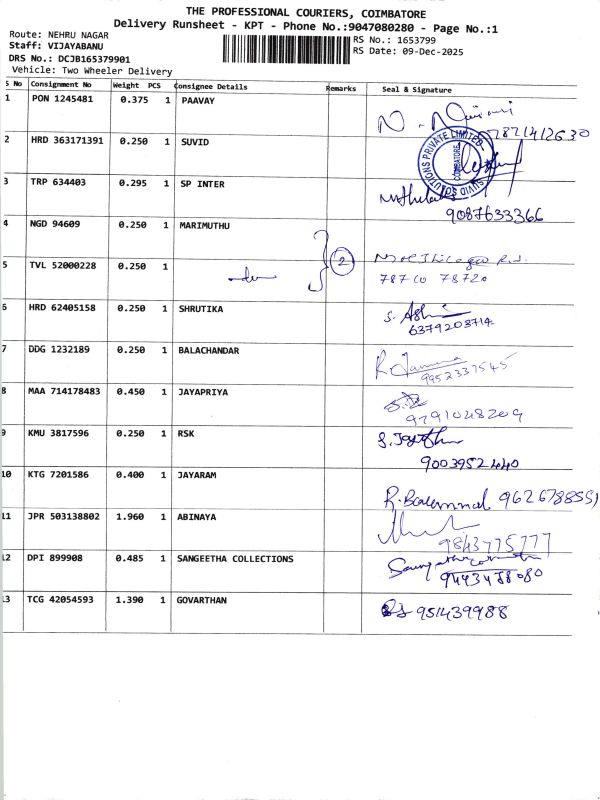 THE PROFESSIONAL COURIERS, COIMBATORE
Delivery Runsheet - KPT - Phone No.:9047080280 - Page No.:1
Route: NEHRU NAGAR
RS No.: 1653799
Staff: VIJAYABANU
RS Date: 09-Dec-2025
DRS No.: DCJB165379901
Vehicle: Two Wheeler Delivery
S No Consignment No Weight PCS Consignee Details Remarks Seal & Signature
1 PON 1245481 0.375 1 PAAVAY
7821412630
2 HRD 363171391 0.250 1 SUVID
SUVID SOLUTIONS PRIVATE LIMITED
COIMBATORE
3 TRP 634403 0.295 1 SP INTER
9087633366
4 NGD 94609 0.250 1 MARIMUTHU
2
5 TVL 52000228 0.250 1
78710 78720
6 HRD 62405158 0.250 1 SHRUTIKA
6379208714
7 DDG 1232189 0.250 1 BALACHANDAR
9952337545
8 MAA 714178483 0.450 1 JAYAPRIYA
9791048209
9 KMU 3817596 0.250 1 RSK
9003952440
10 KTG 7201586 0.400 1 JAYARAM
11 JPR 503138802 1.960 1 ABINAYA
9843775777
12 DPI 899908 0.485 1 SANGEETHA COLLECTIONS
9443458080
13 TCG 42054593 1.390 1 GOVARTHAN
951439988